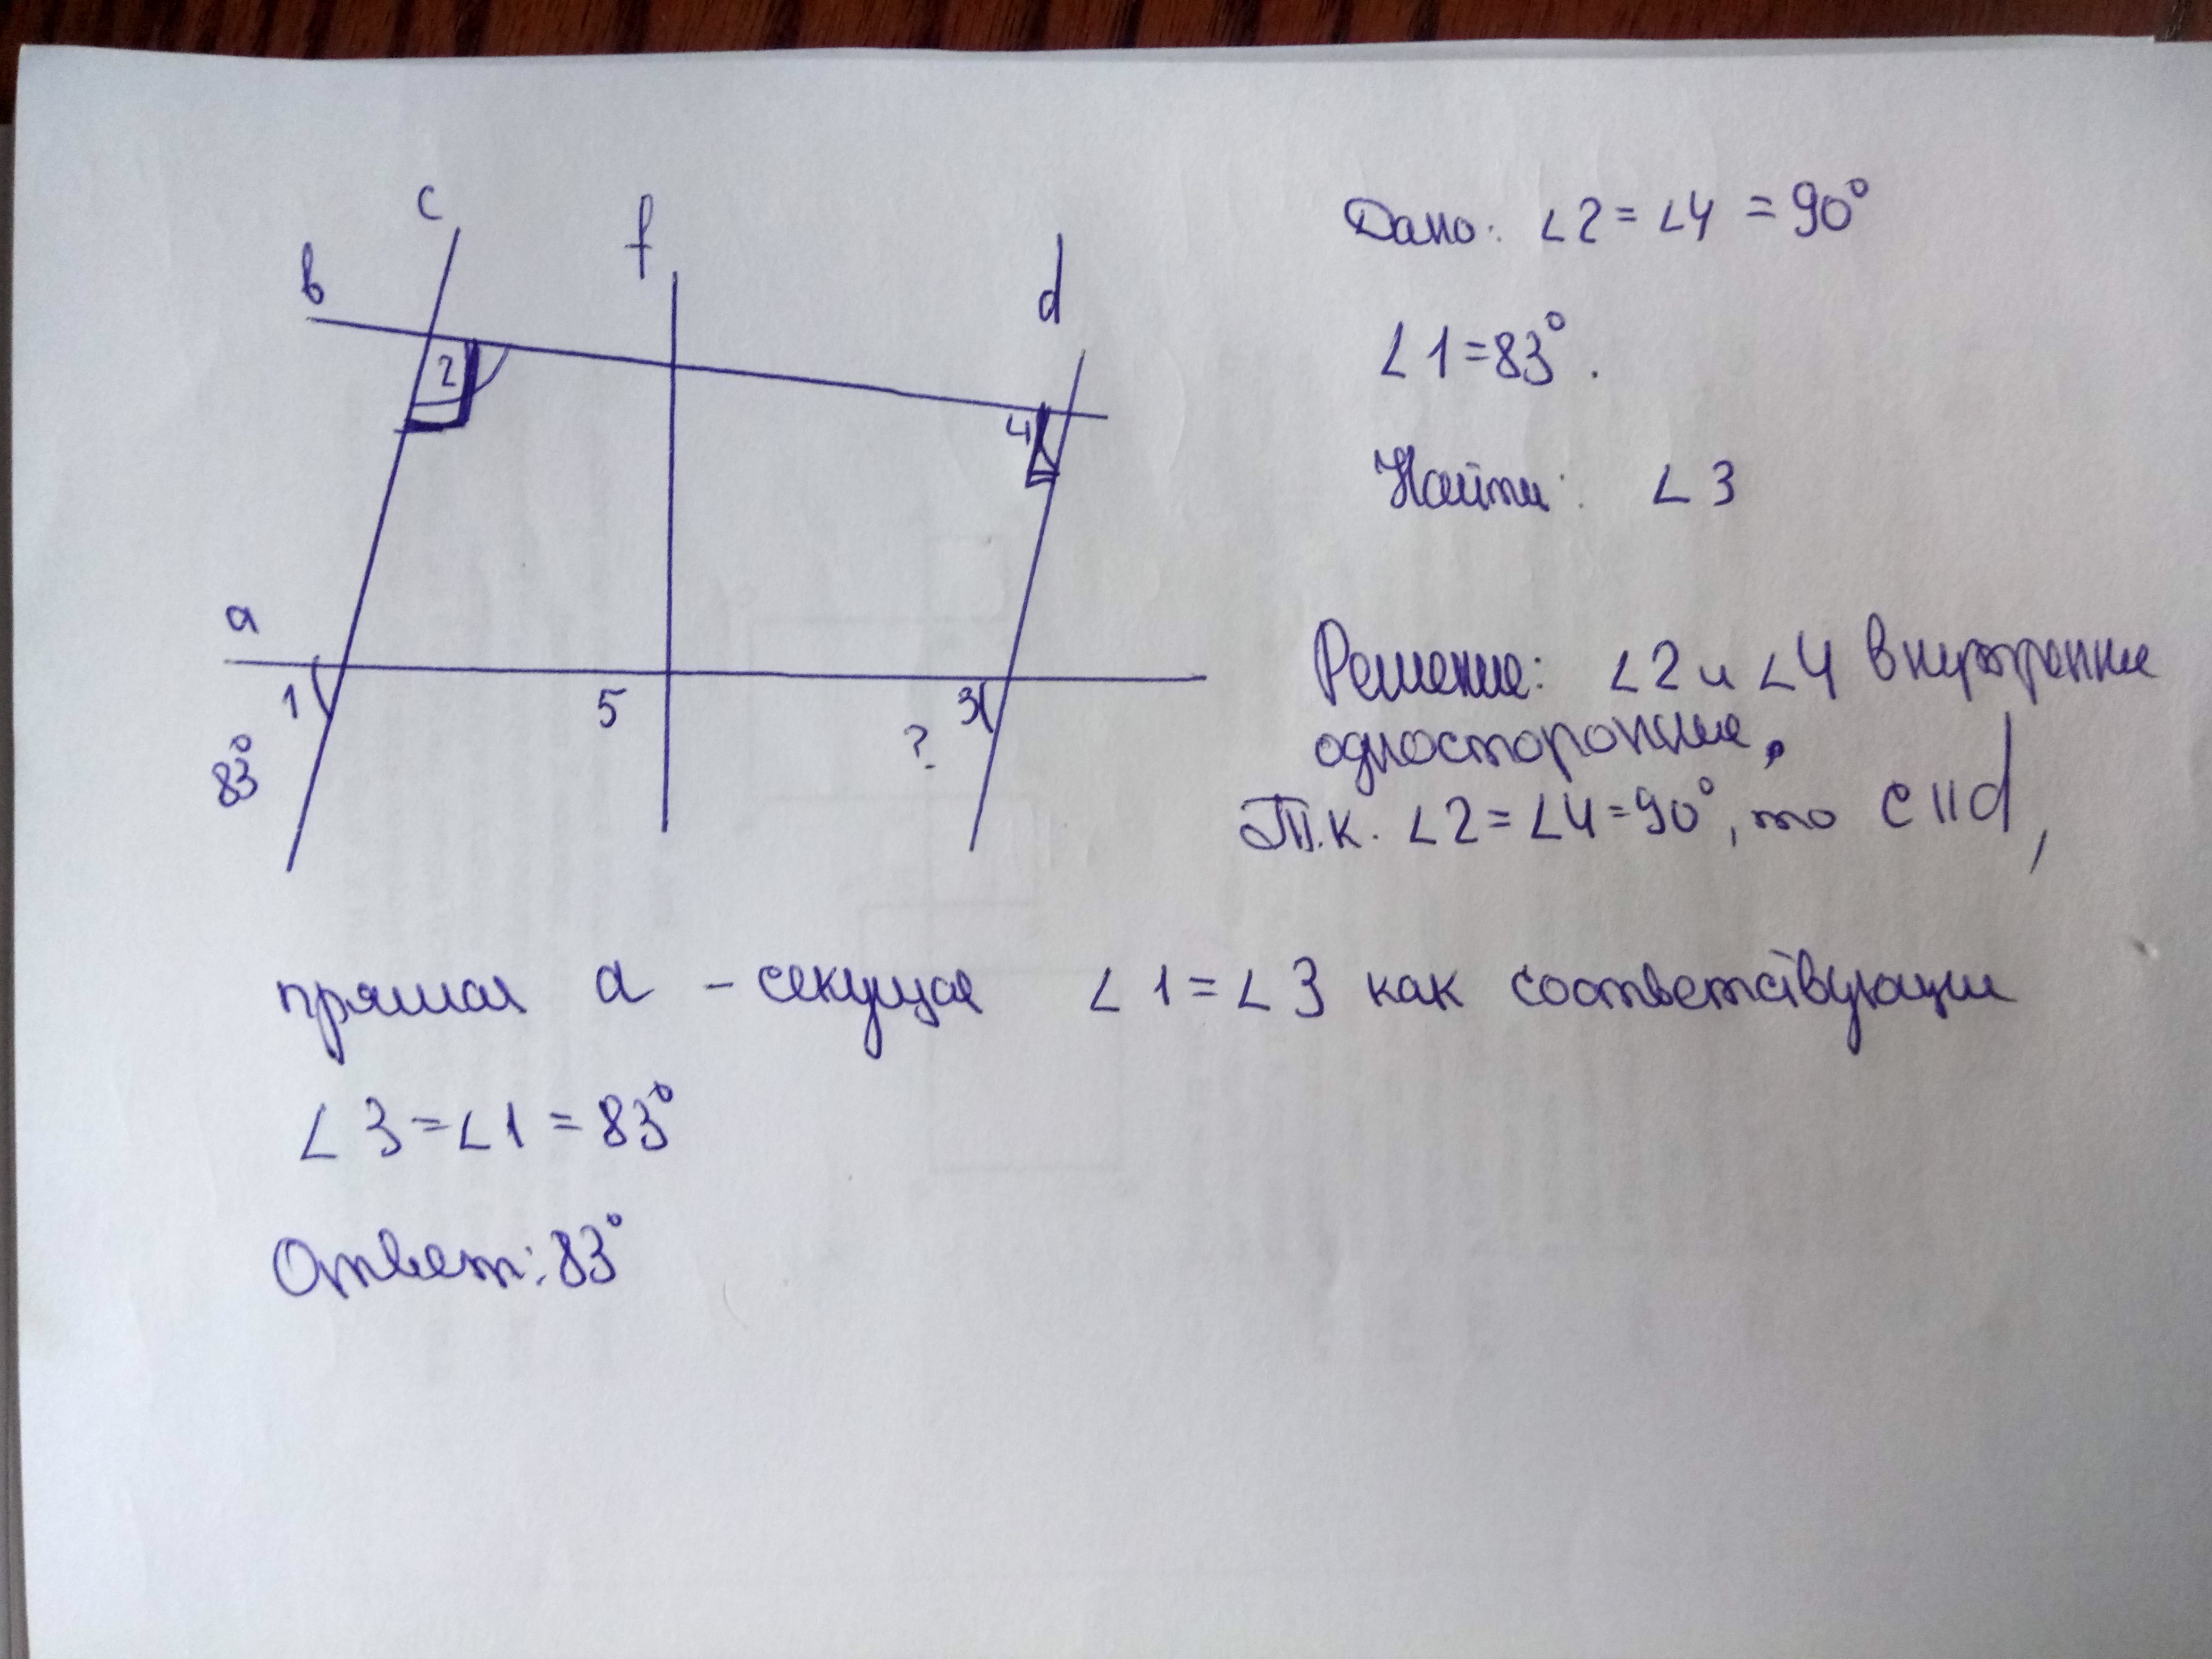 c
f
в
d
2
4
a
1
5
3
?
83°
Дано: ∠2 = ∠4 = 90°
∠1 = 83°.
Найти: ∠3
Решение: ∠2 и ∠4 внутренние
односторонние.
Т.к. ∠2 = ∠4 = 90°, то c || d,
прямая a - секущая ∠1 = ∠3 как соответствующие
∠3 = ∠1 = 83°
Ответ: 83°